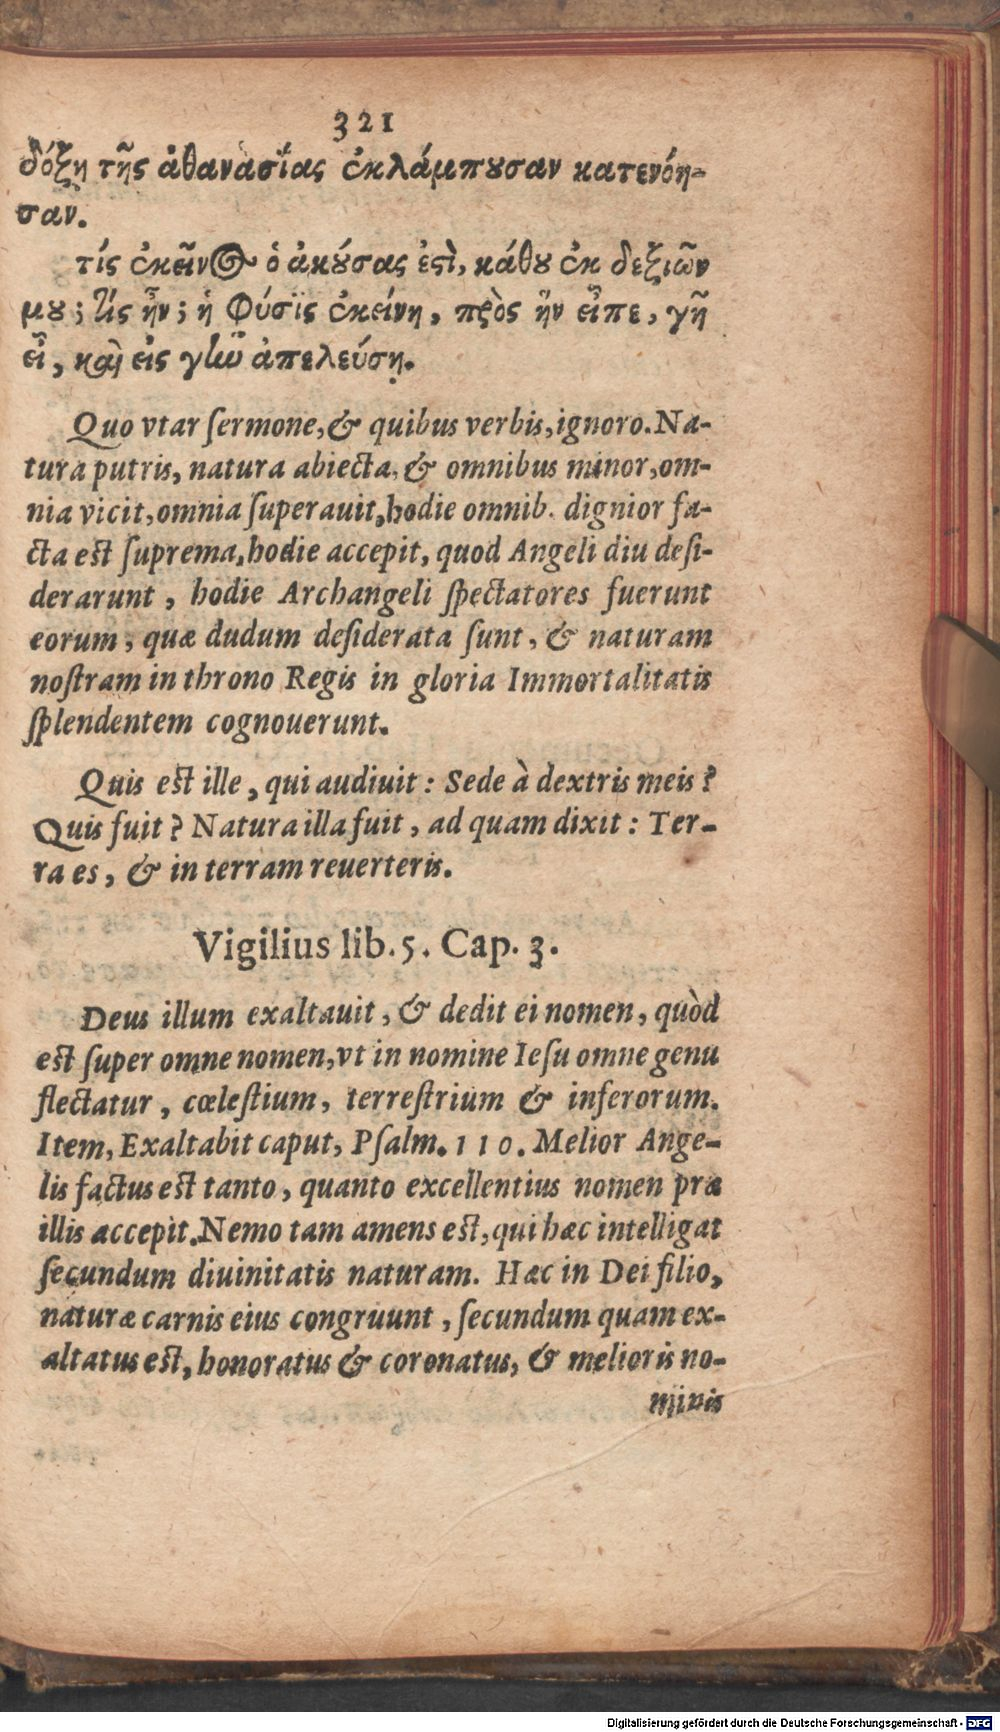 321
δόξη τῆς ἀθανασίας ἐκλάμπουσαν κατενόη-
σαν.
τίς ἐκεῖνος ὁ ἀκούσας ἐστὶ, κάθου ἐκ δεξιῶν
μου; τίς ἦν; ἡ Φύσις ἐκείνη, πρὸς ἣν εἶπε, γῆ
εἶ, καὶ εἰς γῆν ἀπελεύσῃ.
Quo vtar ſermone, & quibus verbis, ignoro. Na-
tura putris, natura abiecta, & omnibus minor, om-
nia vicit, omnia ſuperauit, hodie omnib. dignior fa-
cta est ſuprema, hodie accepit, quod Angeli diu deſi-
derarunt, hodie Archangeli ſpectatores fuerunt
eorum, quæ dudum deſiderata ſunt, & naturam
noſtram in throno Regis in gloria Immortalitatis
ſplendentem cognouerunt.
Quis est ille, qui audiuit: Sede à dextris meis?
Quis fuit? Natura illa fuit, ad quam dixit: Ter-
ra es, & in terram reuerteris.
Vigilius lib. 5. Cap. 3.
Deus illum exaltauit, & dedit ei nomen, quòd
est ſuper omne nomen, vt in nomine Ieſu omne genu
flectatur, cœleſtium, terreſtrium & inferorum.
Item, Exaltabit caput, Pſalm. 110. Melior Ange-
lis factus est tanto, quanto excellentius nomen præ
illis accepit. Nemo tam amens est, qui hæc intelligat
ſecundum diuinitatis naturam. Hæc in Dei filio,
naturæ carnis eius congruunt, ſecundum quam ex-
altatus est, honoratus & coronatus, & melioris no-
minis
Digitalisierung gefördert durch die Deutsche Forschungsgemeinschaft - DFG